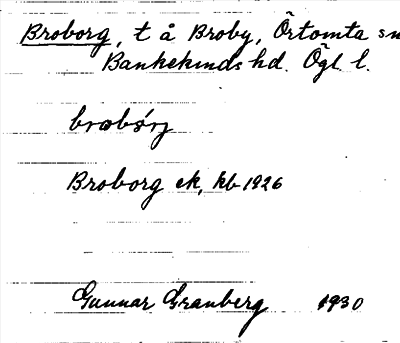 Broborg, t å Broby, Örtomta sn
Bankekinds hd. Ögl. l.
Broborg ek, kb 1926
Gunnar Granberg 1930